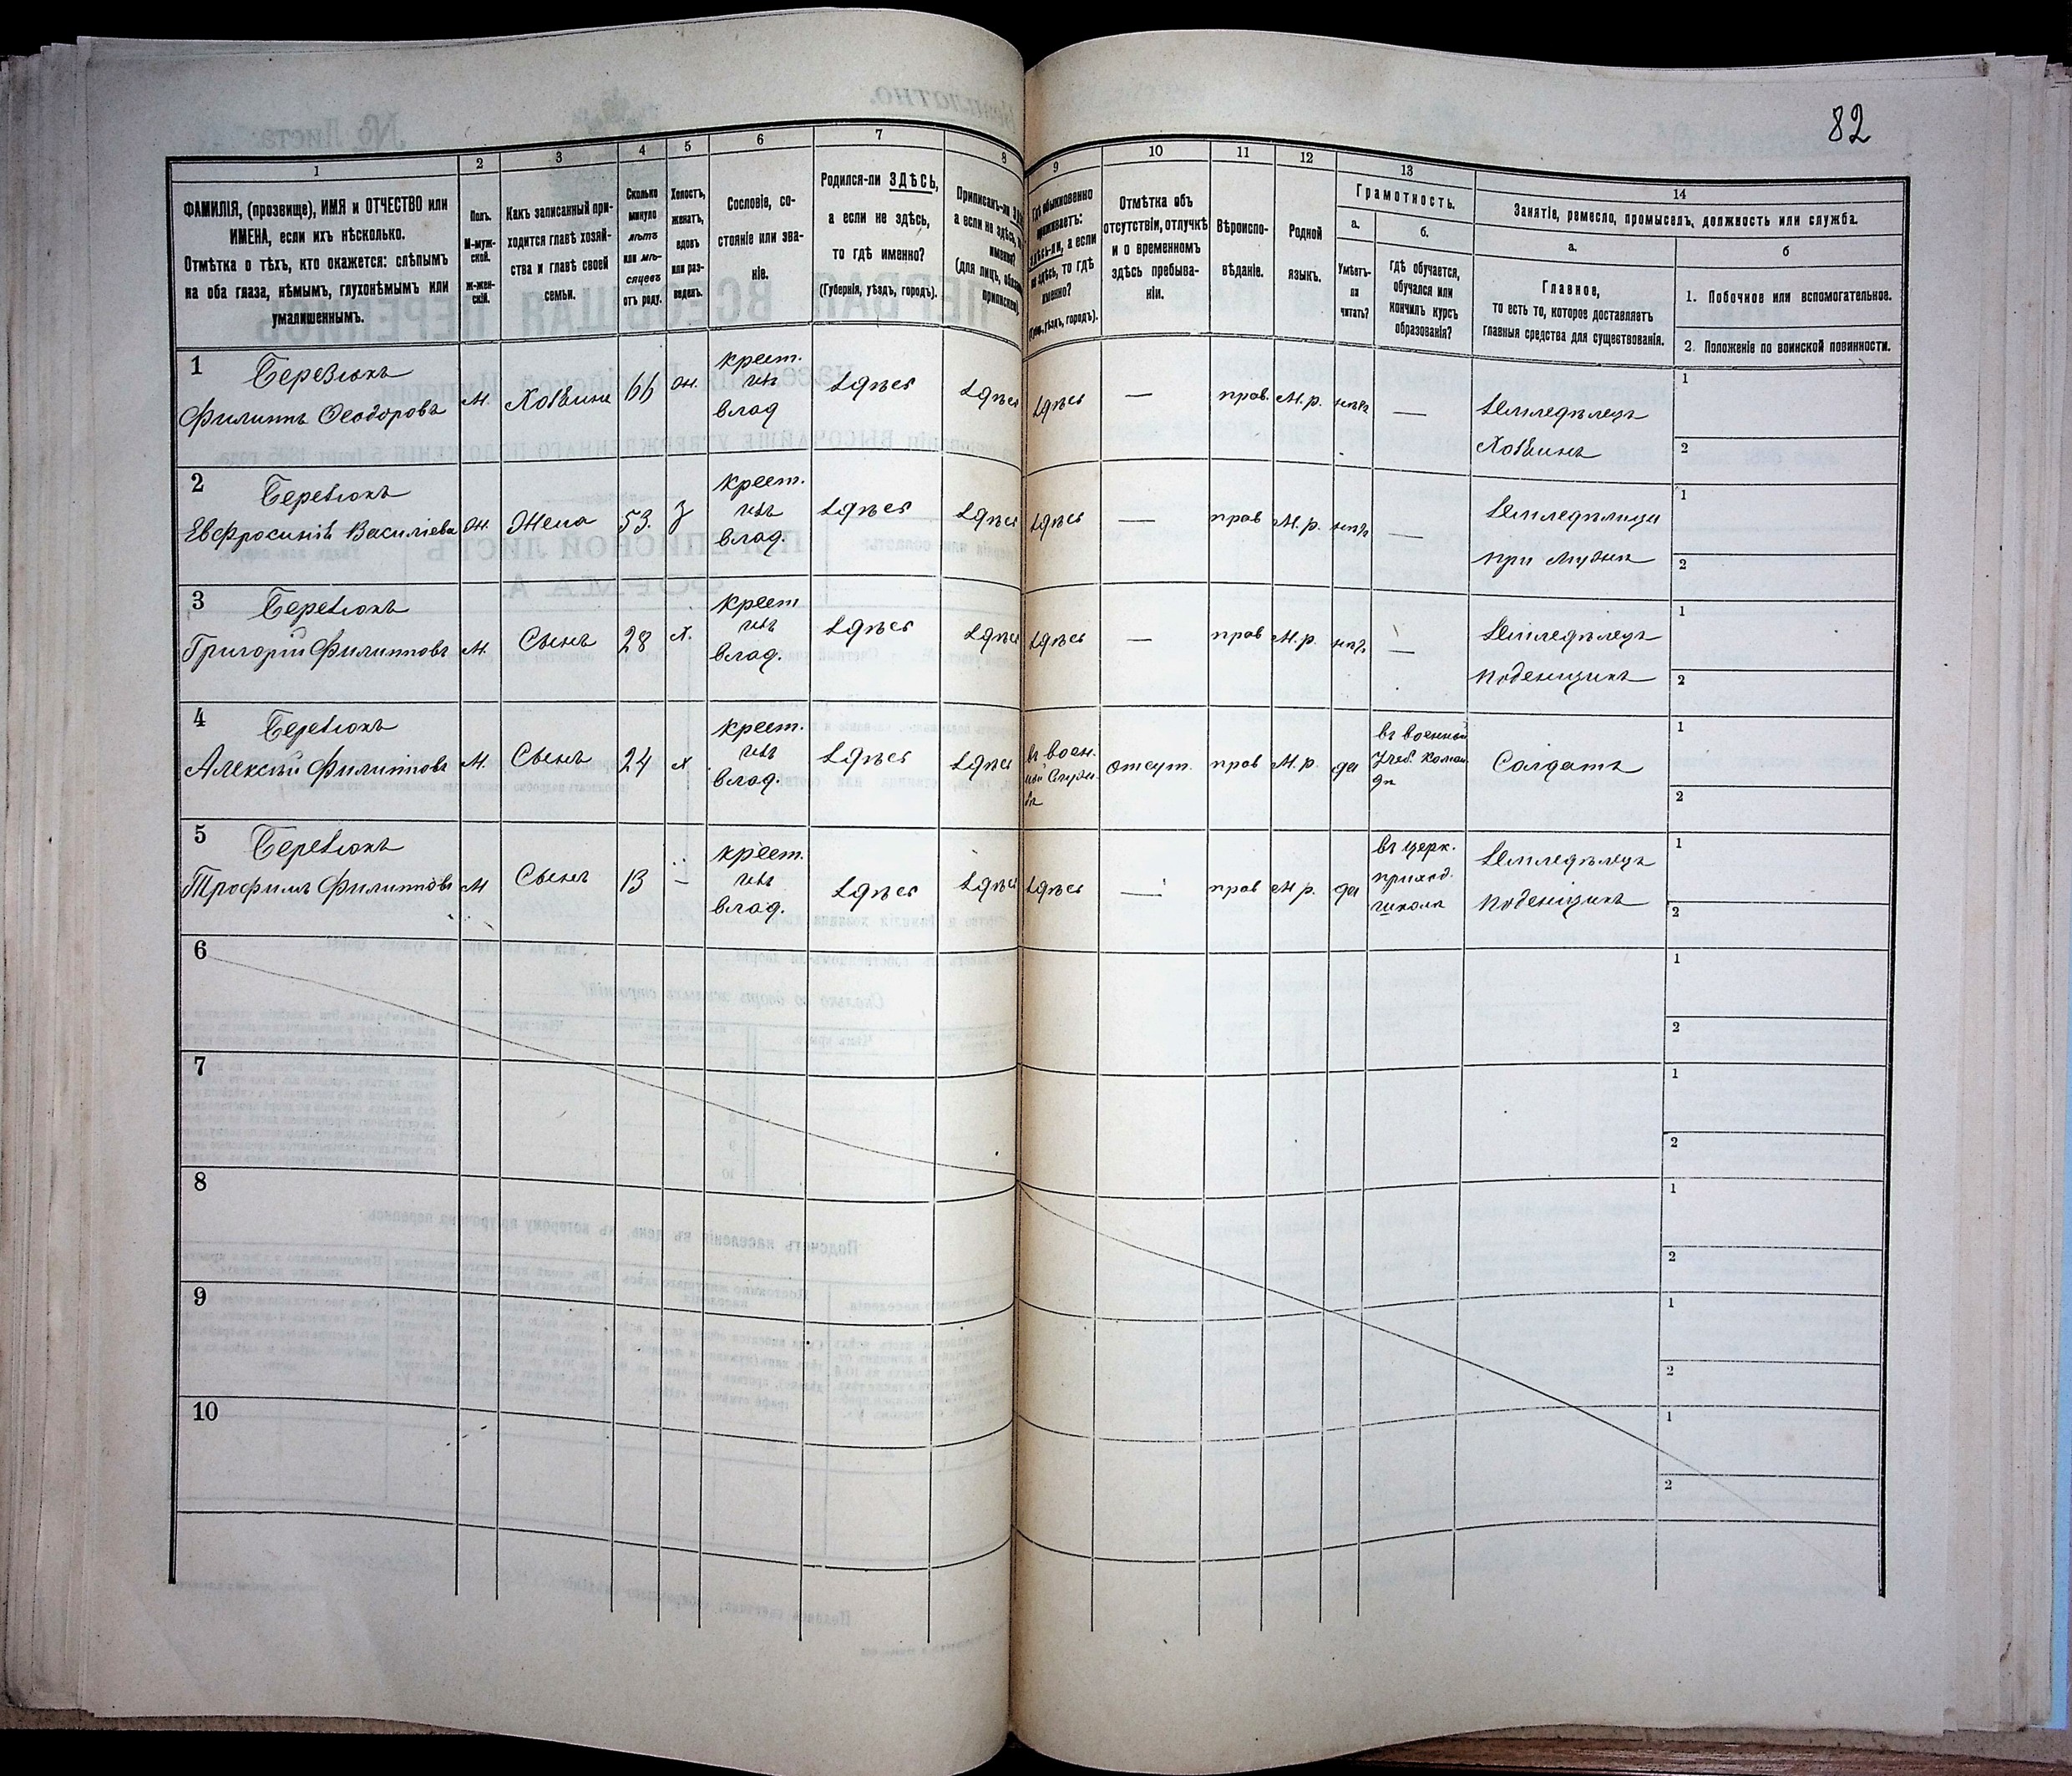 82
1
2
3
4
5
6
7
8
9
10
11
12
13
14
ФАМИЛІЯ, (прозвище), ИМЯ и ОТЧЕСТВО или
ИМЕНА, если ихъ нѣсколько.
Отмѣтка о тѣхъ, кто окажется: слѣпымъ
на оба глаза, нѣмымъ, глухонѣмымъ или
умалишеннымъ.
Полъ.
М-муж-
ской.
ж-жен-
скій.
Какъ записанный при-
ходится главѣ хозяй-
ства и главѣ своей
семьи.
Сколько
минуло
лѣтъ
или мѣ-
сяцевъ
отъ роду.
Холостъ,
женатъ,
вдовъ
или раз-
веденъ.
Сословіе, со-
стояніе или зва-
ніе.
Родился-ли ЗДѢСЬ,
а если не здѣсь,
то гдѣ именно?
(Губернія, уѣздъ, городъ).
Приписанъ-ли
а если не здѣсь,
(для лицъ,
Гдѣ обыкновенно
проживаетъ:
здѣсь-ли, а если
не здѣсь, то гдѣ
именно?
(Губ., уѣздъ, городъ).
Отмѣтка объ
отсутствіи, отлучкѣ
и о временномъ
здѣсь пребыва-
ніи.
Вѣроиспо-
вѣданіе.
Родной
языкъ.
Грамотность.
а.
Умѣетъ-
ли
читать?
б.
гдѣ обучается,
обучался или
кончилъ курсъ
образованія?
Занятіе, ремесло, промыселъ, должность или служба.
а.
Главное,
то есть то, которое доставляетъ
главныя средства для существованія.
б
1. Побочное или вспомогательное.
2. Положеніе по воинской повинности.
1
Березюкъ
Филиппъ Феодоровъ
М.
Хозяинъ
66
Ж.
крест.
изъ
влад
Здѣсь
Здѣсь
Здѣсь
—
прав.
М.р.
нѣтъ
—
Земледѣлецъ
Хозяинъ
1
2
2
Березюкъ
Евфросинія Василіева
Ж.
Жена
53.
З
крест.
изъ
влад.
Здѣсь
Здѣсь
Здѣсь
—
прав
М.р.
нѣтъ
—
Земледѣлица
при мужѣ
1
2
3
Березюкъ
Григорій Филипповъ
М.
Сынъ
28
Х.
крест
изъ
влад.
Здѣсь
Здѣсь
Здѣсь
—
прав
М.р.
нѣтъ
—
Земледѣлецъ
поденщикъ
1
2
4
Березюкъ
Алексѣй Филипповъ
М.
Сынъ
24
Х
крест.
изъ
влад.
Здѣсь
Здѣсь
въ воен-
ной служ-
бѣ
отсут.
прав
М.р.
да
въ военной
учеб. коман
дѣ
Солдатъ
1
2
5
Березюкъ
Трофимъ Филипповъ
М
Сынъ
13
—
крест.
изъ
влад.
Здѣсь
Здѣсь
Здѣсь
—
прав
М р.
да
въ церк.
приход.
школѣ
Земледѣлецъ
поденщикъ
1
2
6
1
2
7
1
2
8
1
2
9
1
2
10
1
2